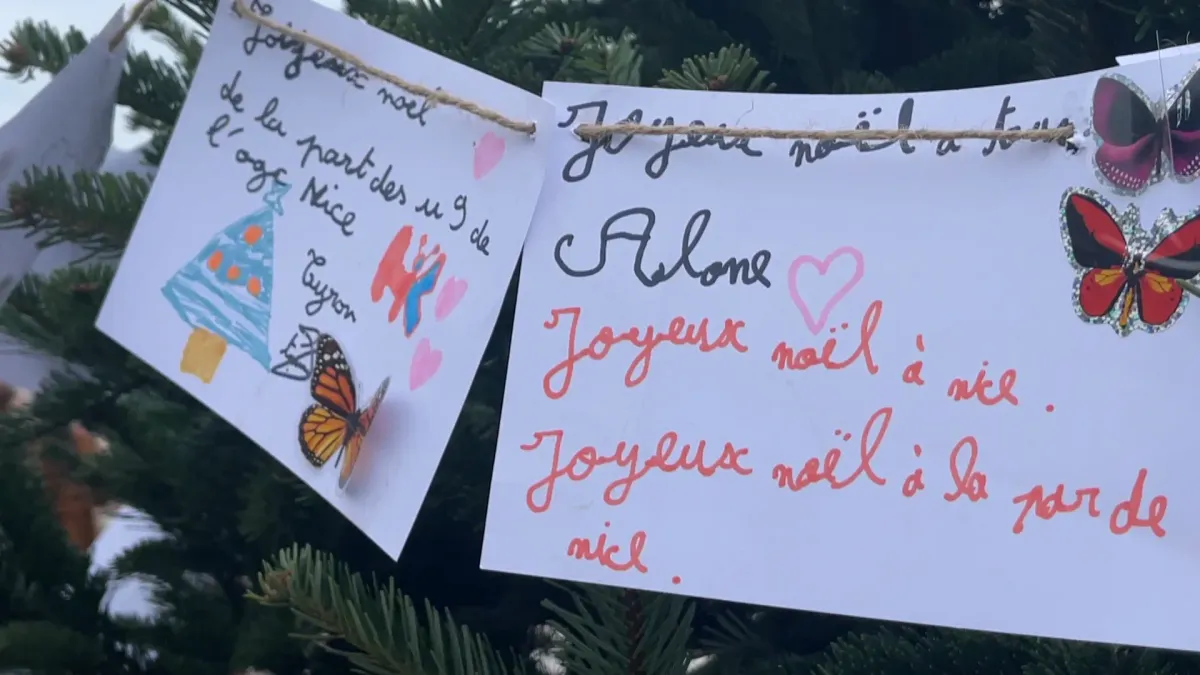 Joiyeux noël
de la part des u 9 de
l'ogc Nice
Joyeux noël à tous
Alone
Joyeux noël à nice.
Joyeux noël à la par de
nice.